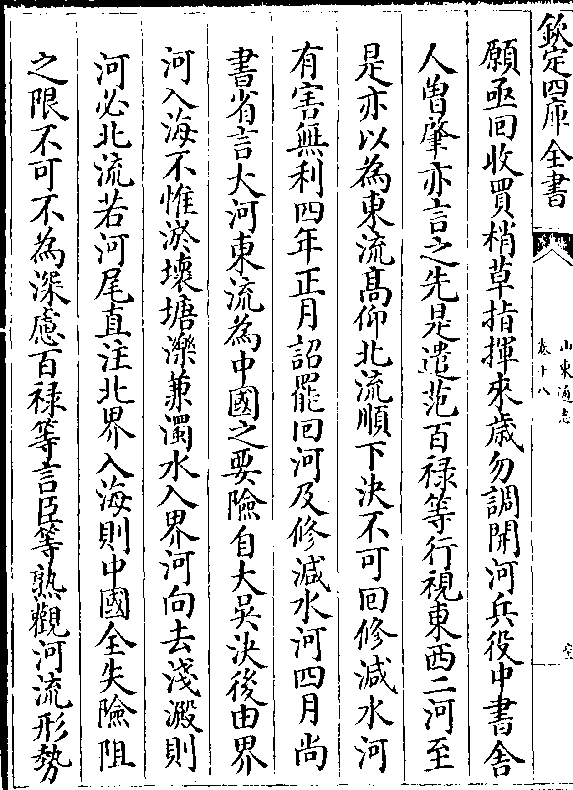 欽定四庫全書
山東通志
卷十八
願亟回收買梢草指揮來歳勿調開河兵役中書舍
人曾肇亦言之先是遣范百禄等行視東西二河至
是亦以為東流髙仰北流順下決不可回修減水河
有害無利四年正月詔罷回河及修減水河四月尚
書省言大河東流為中國之要險自大吳決後由界
河入海不惟淤壊塘濼兼濁水入界河向去淺澱則
河必北流若河尾直注北界入海則中國全失險阻
之限不可不為深慮百禄等言臣等熟觀河流形勢